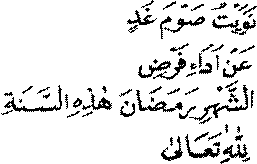 نَوَيْتُ صَوْمَ غَدٍ
عَنْ اَدَاءِ فَرْضِ
الشَّهْرِ رَمَضَانَ هٰذِهِ السَّنَةِ
لِلّٰهِ تَعَالىٰ